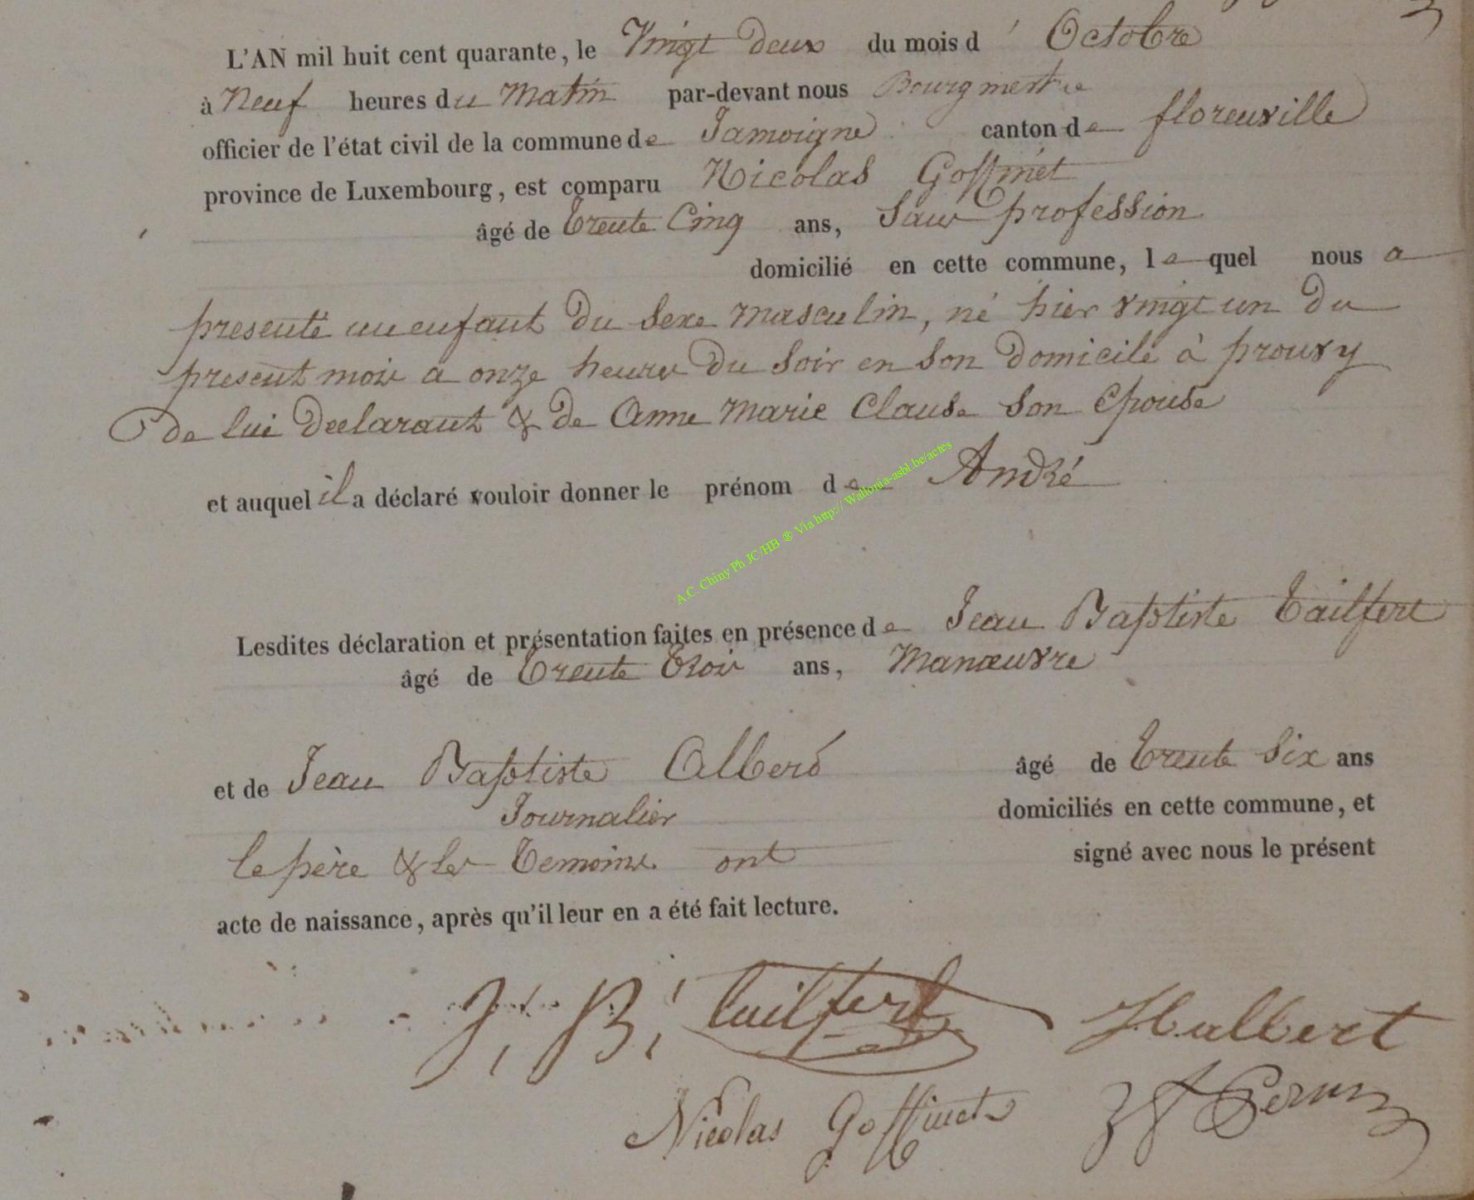 L'AN mil huit cent quarante, le Vingt deux du mois d' Octobre
à Neuf heures du Matin par-devant nous Bourgmestre
officier de l'état civil de la commune de Jamoigne canton de florenville
province de Luxembourg, est comparu Nicolas Goffinet
âgé de trente Cinq ans, Sans profession
domicilié en cette commune, lequel nous a
presenté un enfant du sexe masculin, né hier vingt un du
present mois a onze heures du soir en son domicile à prouvy
de lui declarant & de Anne Marie Clause son Epouse
et auquel il a déclaré vouloir donner le prénom de André
A.C. Chiny Ph JC/HB ® Via http:// Wallonia-asbl.be/actes
Lesdites déclaration et présentation faites en présence de Jean Baptiste Tailfert
âgé de trente trois ans, Manœuvre
et de Jean Baptiste Alberó âgé de trente Six ans
Journalier domiciliés en cette commune, et
le père & les temoins ont signé avec nous le présent
acte de naissance, après qu'il leur en a été fait lecture.
J. B. tailfert Halbert
Nicolas Goffinet